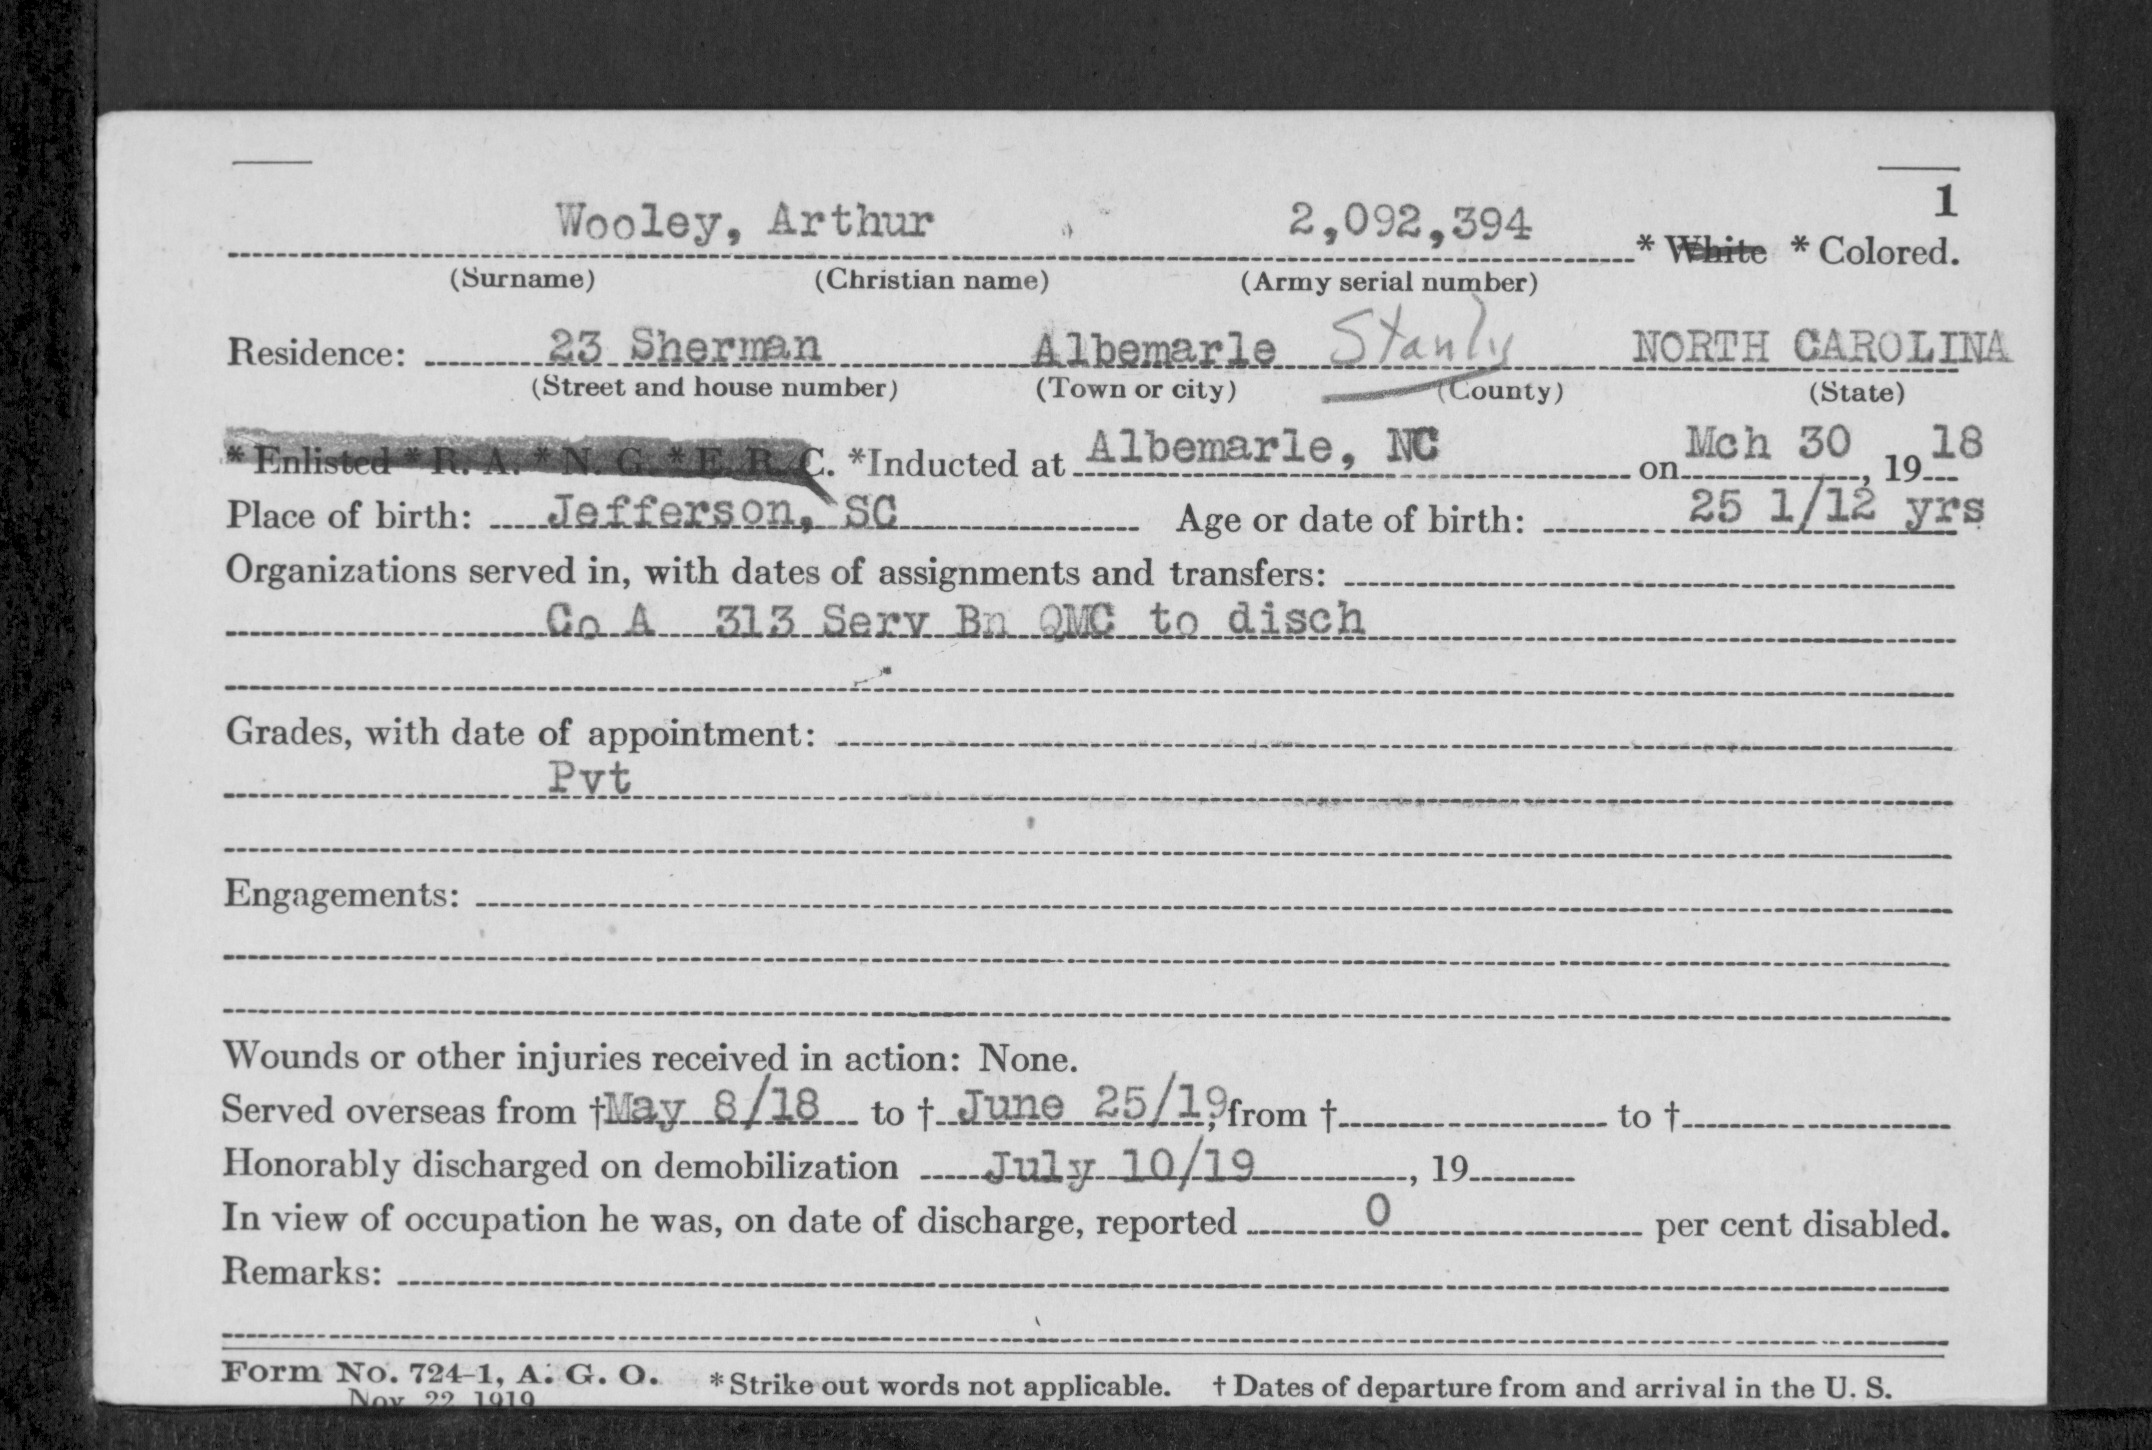 1
Wooley, Arthur 2,092,394 * White * Colored.
(Surname) (Christian name) (Army serial number)
Residence: 23 Sherman Albemarle Stanly NORTH CAROLINA
(Street and house number) (Town or city) (County) (State)
* Enlisted * R. A. * N. G. * E. R. C. *Inducted at Albemarle, NC on Mch 30, 1918
Place of birth: Jefferson, SC Age or date of birth: 25 1/12 yrs
Organizations served in, with dates of assignments and transfers:
Co A 313 Serv Bn QMC to disch
Grades, with date of appointment:
Pvt
Engagements:
Wounds or other injuries received in action: None.
Served overseas from †May 8/18 to † June 25/19, from † to †
Honorably discharged on demobilization July 10/19, 19
In view of occupation he was, on date of discharge, reported 0 per cent disabled.
Remarks:
Form No. 724-1, A. G. O. * Strike out words not applicable. † Dates of departure from and arrival in the U. S.
Nov. 22, 1919